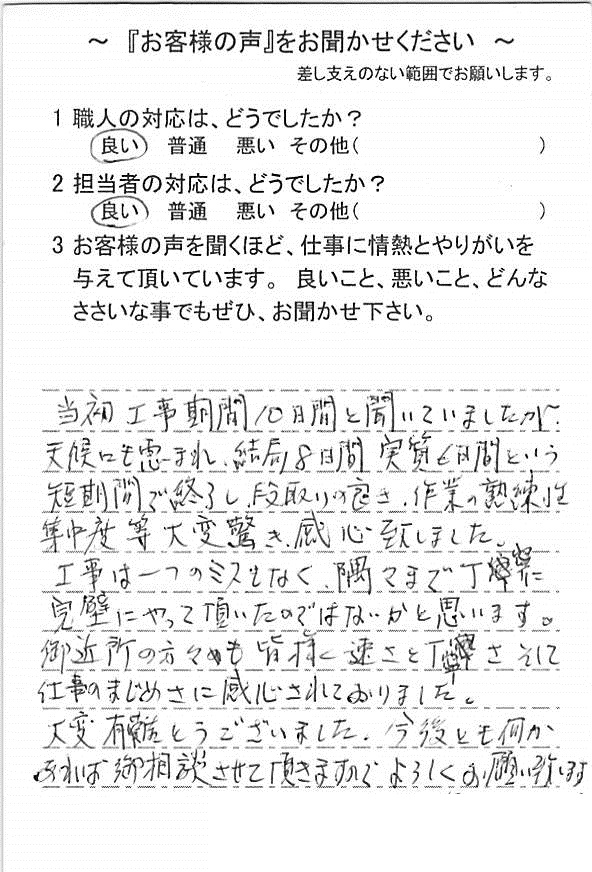 ～ 『お客様の声』をお聞かせください ～
差し支えのない範囲でお願いします。
1 職人の対応は、どうでしたか？
良い 普通 悪い その他( )
2 担当者の対応は、どうでしたか？
良い 普通 悪い その他( )
3 お客様の声を聞くほど、仕事に情熱とやりがいを
与えて頂いています。 良いこと、悪いこと、どんな
ささいな事でもぜひ、お聞かせ下さい。
当初工事期間10日間と聞いていましたが、
天候にも恵まれ、結局8日間 実質6日間という
短期間で終了し、段取りの良さ、作業の熟練性
集中度等大変驚き、感心致しました。
工事は一つのミスもなく、隅々まで丁寧に
完璧にやって頂いたのではないかと思います。
御近所の方々も皆様 速さと丁寧さそして
仕事のまじめさに感心されておりました。
大変有難とうございました。今後とも何か
あれば御相談させて頂きますのでよろしくお願い致します